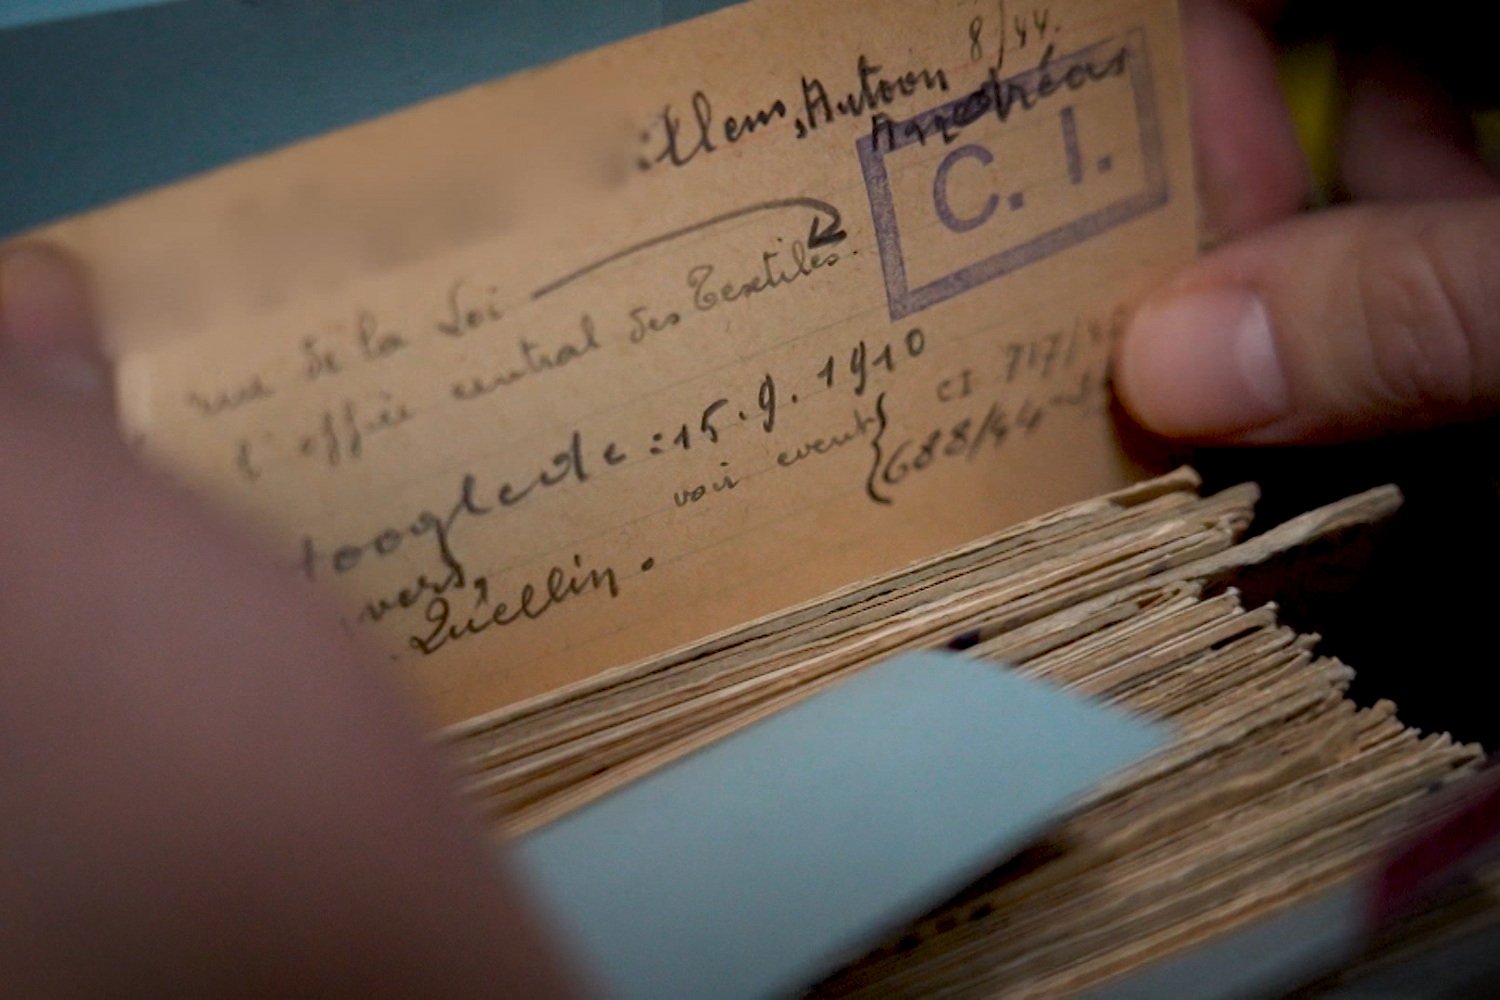 8/44.
:Klems, Antoon
Andréas
C. I.
rue de la Loi
l'office central des Textiles.
tooglede :15.9.1910
voir event { CI 717/
688/44
vers,
Quellin.